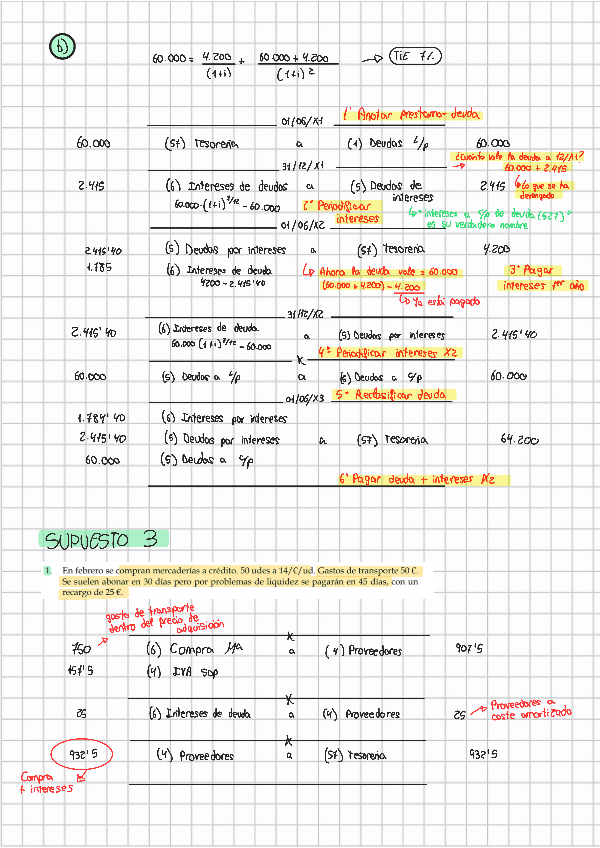 b)
60.000 = 4.200 / (1+i) + 60.000 + 4.200 / (1+i)² → TIE 7%
1º Anotar prestamo - deuda
01/06/X1
60.000 (57) Tesorería a (1) Deudas L/p 60.000
31/12/X1
¿Cuánto vale la deuda a 12/X1?
→ 60.000 + 2.415
2.415 (6) Intereses de deudas a (5) Deudas de intereses 2.415 ↳ Lo que se ha devengado
60.000·(1+i)^7/12 - 60.000
2º Periodificar intereses
↳ "intereses a c/p de deuda (527)" es su verdadero nombre
01/06/X2
2.415'40 (5) Deudas por intereses a (57) Tesorería 4.200
1.785 (6) Intereses de deuda
4200 - 2.415'40
↳ Ahora la deuda vale = 60.000
(60.000 + 4.200) - 4.200
↳ Ya está pagado
3º Pagar intereses 1er año
31/12/X2
2.415'40 (6) Intereses de deuda a (5) Deudas por intereses 2.415'40
60.000 (1+i)^7/12 - 60.000
4º Periodificar intereses X2
x
60.000 (5) Deudas a L/p a (5) Deudas a c/p 60.000
01/06/X3 5º Reclasificar deuda
1.784'40 (6) Intereses por intereses
2.415'40 (5) Deudas por intereses a (57) Tesorería 64.200
60.000 (5) Deudas a c/p
6º Pagar deuda + intereses X2
SUPUESTO 3
1. En febrero se compran mercaderías a crédito. 50 udes a 14/€/ud. Gastos de transporte 50 €.
Se suelen abonar en 30 días pero por problemas de liquidez se pagarán en 45 días, con un
recargo de 25 €.
gasto de transporte
dentro del precio de
adquisición
x
750 (6) Compra Ma a (4) Proveedores 907'5
157'5 (4) IVA sop
x
25 (6) Intereses de deuda a (4) Proveedores 25 → Proveedores a coste amortizado
x
932'5 (4) Proveedores a (57) Tesorería 932'5
Compra
+ intereses